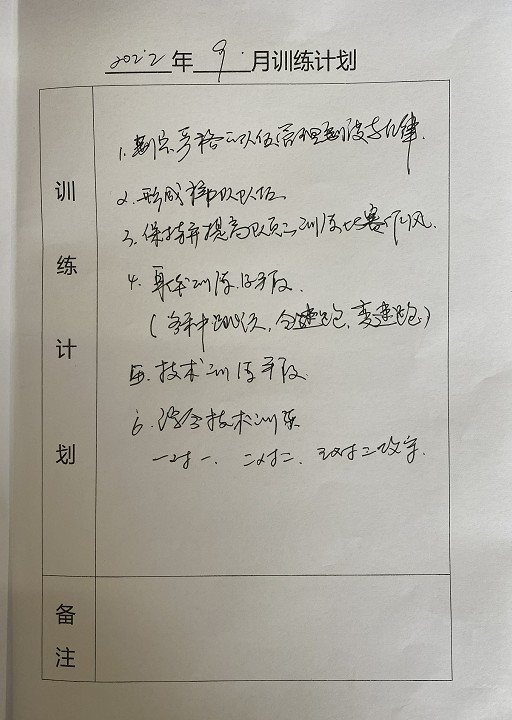 2022年 9 月训练计划
训练计划
1. 制定严格的队伍管理制度与纪律.
2. 形成梯队队伍
3. 保持并提高队员的训练比赛作风.
4. 身体训练手段.
(各种跳跃, 全速跑, 变速跑)
5. 技术训练手段
6. 结合技术训练
一对一. 二对二. 三对三攻守.
备注